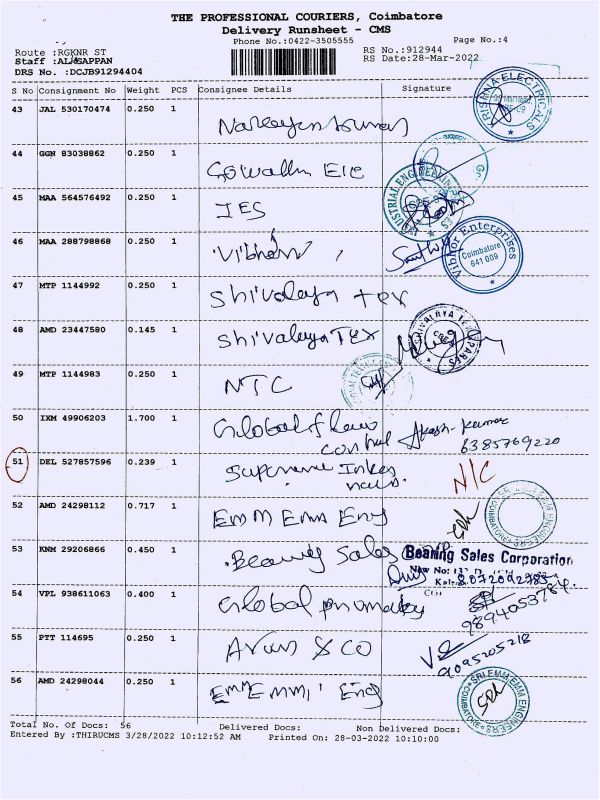 THE PROFESSIONAL COURIERS, Coimbatore
Delivery Runsheet - CMS
Phone No.:0422-3505555 Page No.:4
Route :RGKNR ST RS No.:912944
Staff :ALAGAPPAN RS Date:28-Mar-2022
DRS No. :DCJB91294404
S No Consignment No Weight PCS Consignee Details Signature
43 JAL 530170474 0.250 1
44 GGN 83038862 0.250 1
45 MAA 564576492 0.250 1 IES
46 MAA 288798868 0.250 1 Vibhor
Vibhor Enterprises
Coimbatore
641 009
47 MTP 1144992 0.250 1 Shivalaya tex
48 AMD 23447580 0.145 1 Shivalaya Tex
49 MTP 1144983 0.250 1 NTC
50 IXM 49906203 1.700 1 Global flow
control Akash-kumar
6385769220
51 DEL 527857596 0.239 1 Supreme Inkes N/C
52 AMD 24298112 0.717 1 EMM EMM Eng
53 KNM 29206866 0.450 1 Bearing Sales Bearing Sales Corporation
54 VPL 938611063 0.400 1 Global
9894053784
55 PTT 114695 0.250 1 Arun & CO
9095205218
56 AMD 24298044 0.250 1 EMM EMM Eng
SRI EMM EMM ENGINEERS
Total No. Of Docs: 56 Delivered Docs: Non Delivered Docs:
Entered By :THIRUCMS 3/28/2022 10:12:52 AM Printed On: 28-03-2022 10:10:00